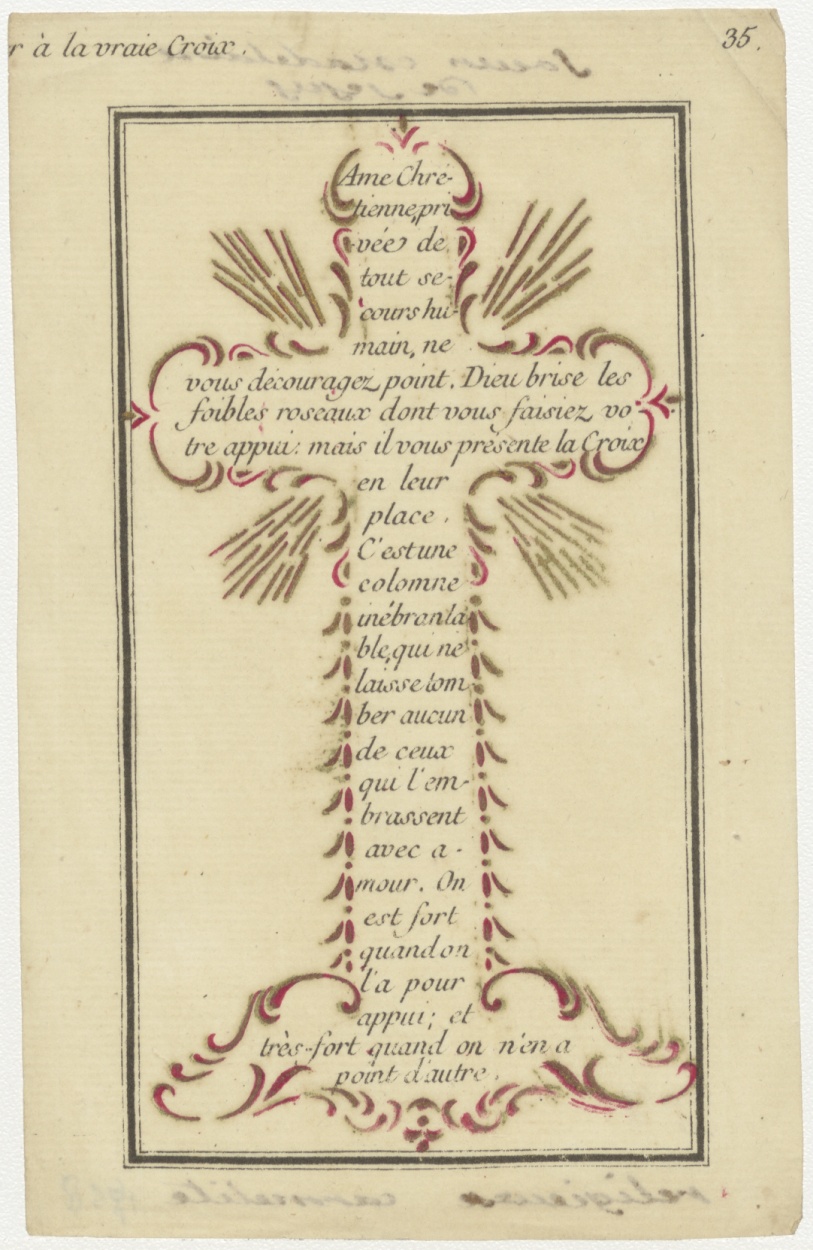 r à la vraie Croix.
35.
Ame Chré-
tienne, pri
vée de
tout se-
cours hu-
main, ne
vous découragez point. Dieu brise les
foibles roseaux dont vous faisiez vo-
tre appui: mais il vous présente la Croix
en leur
place.
C'est une
colomne
inébranla
ble, qui ne
laisse tom
ber aucun
de ceux
qui l'em-
brassent
avec a-
mour. On
est fort
quand on
l'a pour
appui; et
très-fort quand on n'en a
point d'autre.
religieuse carmelite